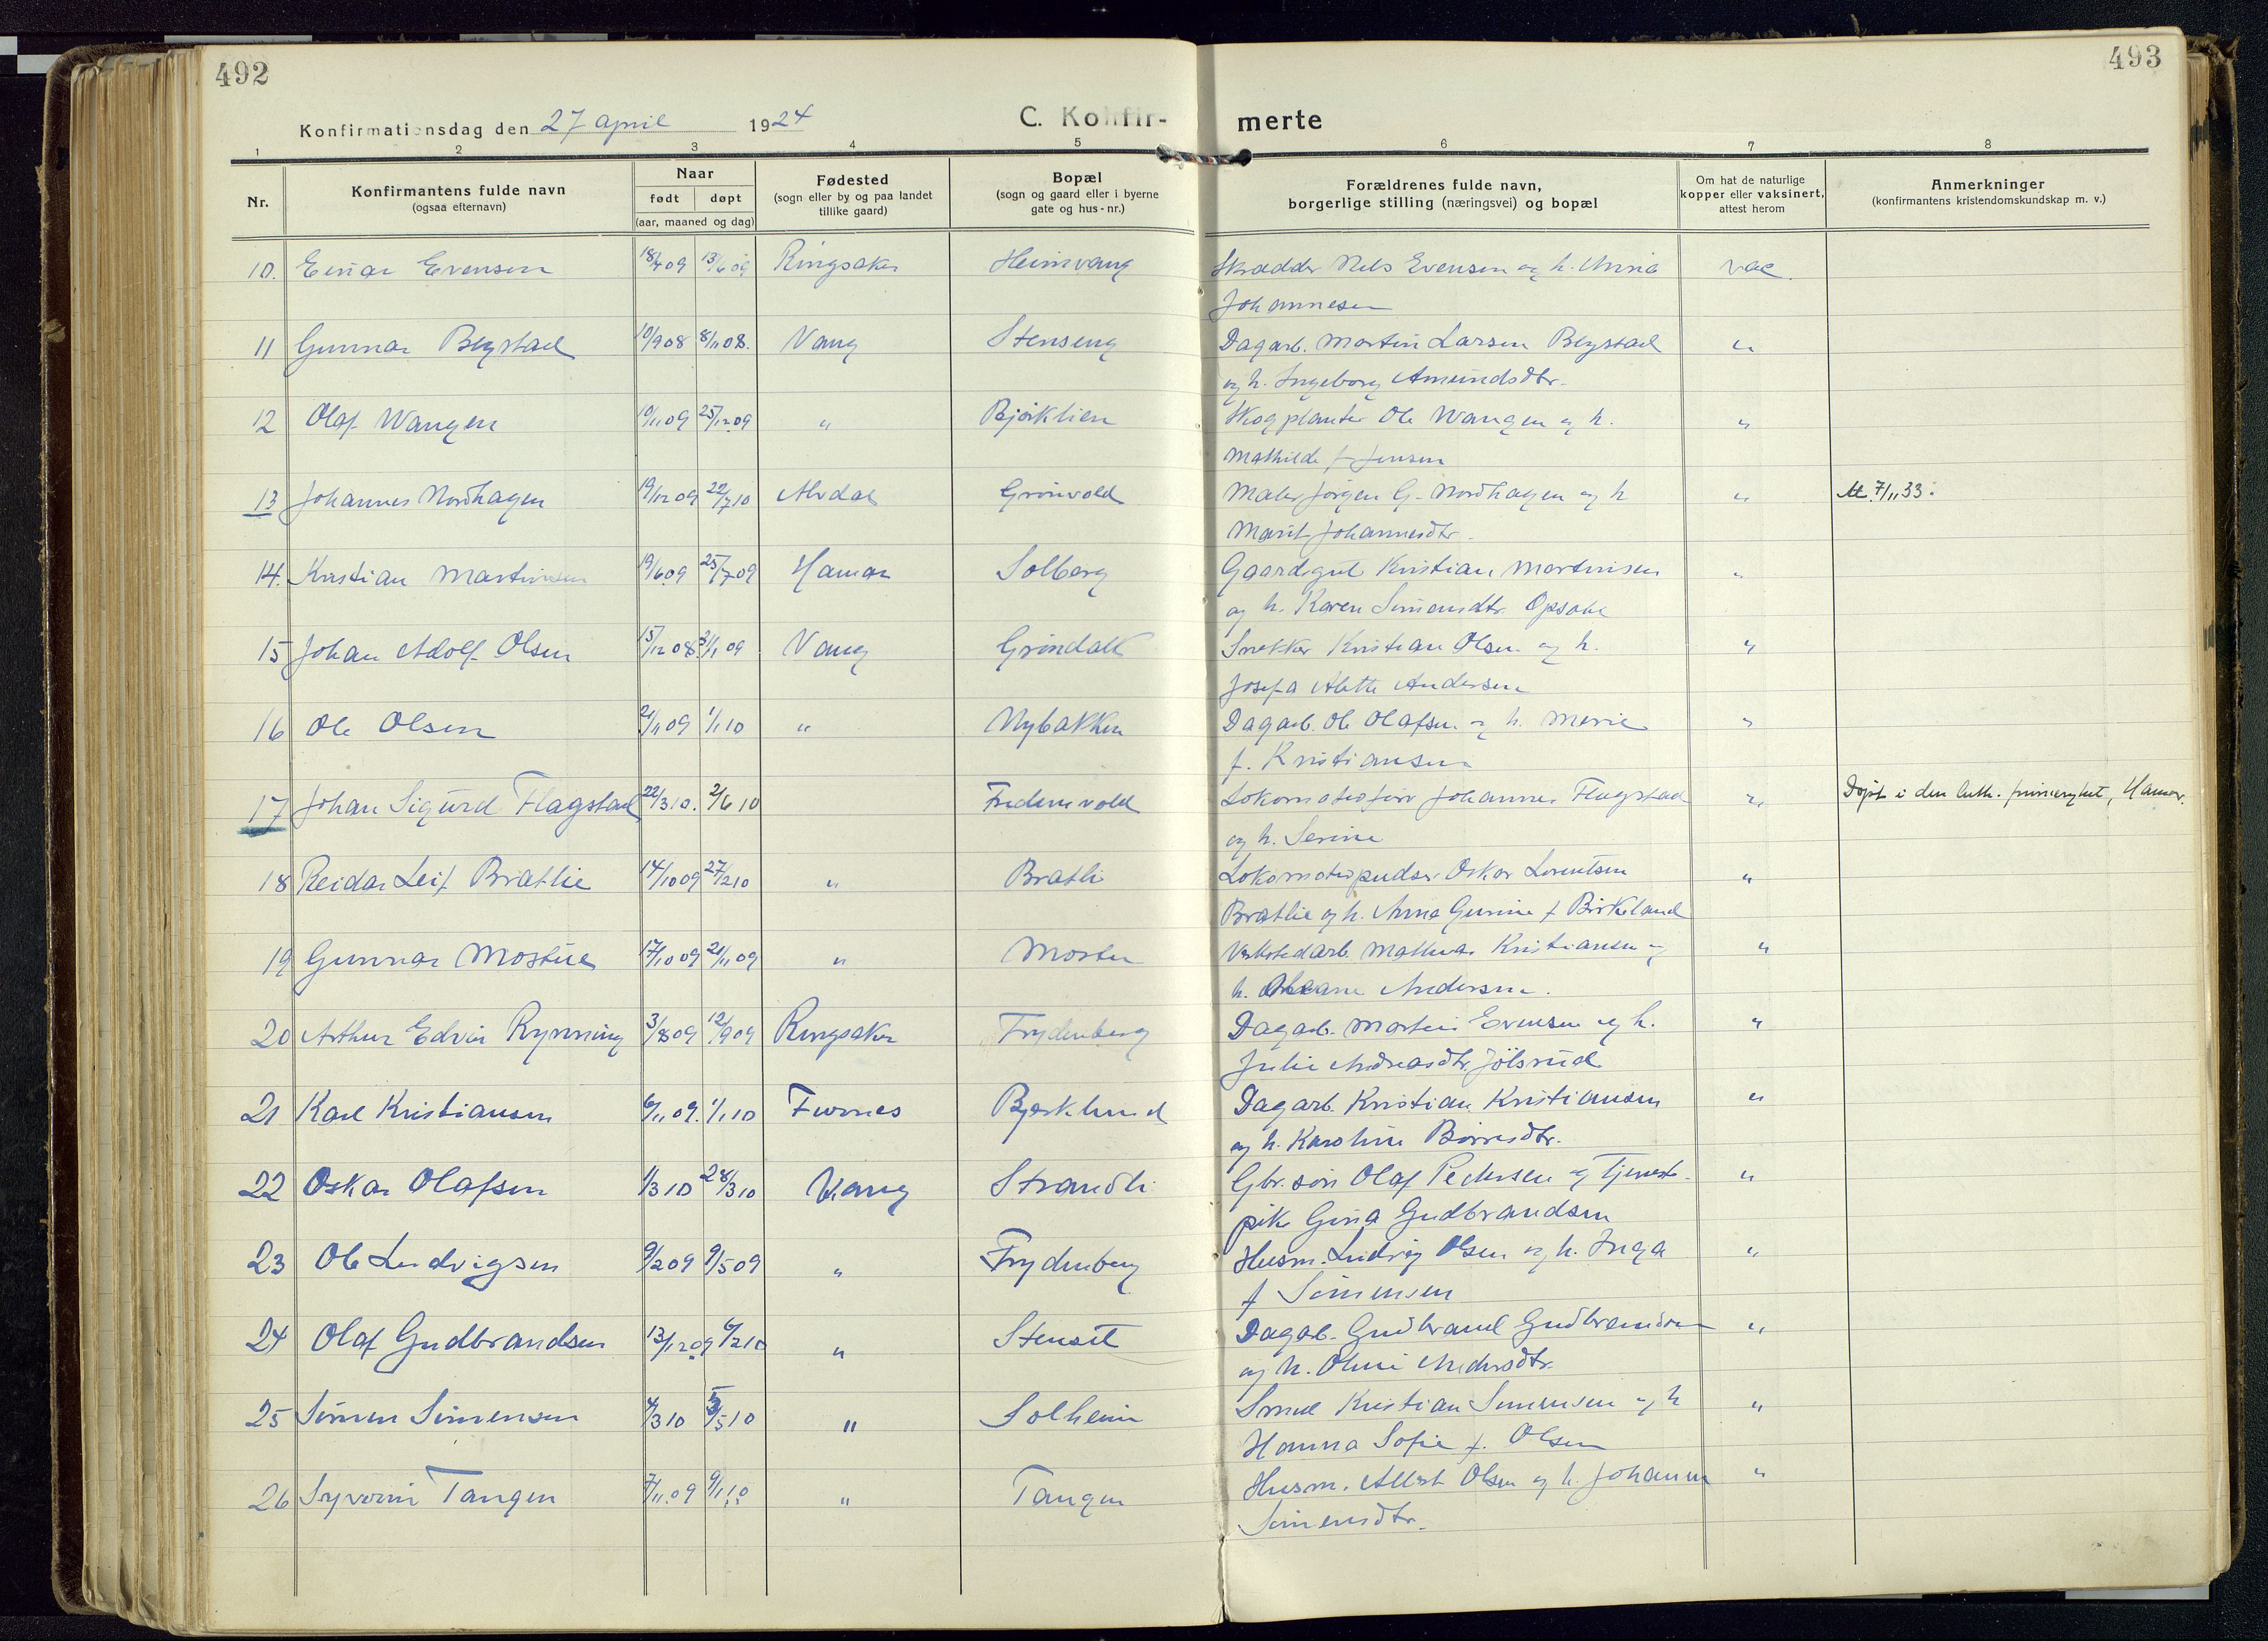 492
493
Konfirmationsdag den 27 april 1924
C. Konfir-
merte
1 2 3 4 5 6 7 8
Nr.
Konfirmantens fulde navn
(ogsaa efternavn)
Naar
født døpt
(aar, maaned og dag)
Fødested
(sogn eller by og paa landet
tillike gaard)
Bopæl
(sogn og gaard eller i byerne
gate og hus-nr.)
Forældrenes fulde navn,
borgerlige stilling (næringsvei) og bopæl
Om hat de naturlige
kopper eller vaksinert,
attest herom
Anmerkninger
(konfirmantens kristendomskundskap m. v.)
10. Einar Evensen 18/4 09 13/6 09 Ringsaker Heimvang Skrædder Nils Evensen og h. Anna vac.
Johannesen
11 Gunnar Bergstad 10/9 08 8/11 08. Vang Stenseng Dagarb. Martin Larsen Bergstad "
og h. Ingeborg Amundsdtr.
12 Olaf Wangen 10/11 09 25/12 09 " Bjørklien Skogplanter Ole Wangen og h. "
Mathilde f Jensen
13 Johannes Nordhagen 19/12 09 22/7 10 Alvdal Grønvold Maler Jørgen G. Nordhagen og h "
Marit Johannesdtr.
Ut. 7/11 33.
14. Kristian Martinsen 19/6 09 25/7 09 Hamar Solberg Gaardsgut Kristian Martinsen "
og h. Karen Simensdtr. Opsahl
15 Johan Adolf Olsen 15/12 08 /1 09 Vang Grindalk Snekker Kristian Olsen og h. "
Josefa Alette Andersen
16 Ole Olsen 21/11 09 1/1 10 " Nybakken Dagarb. Ole Olafsen og h. Marie "
f. Kristiansen
17 Johan Sigurd Flagstad 22/3 10. 2/6 10 Fredenvold Lokomotivfører Johannes Flagstad "
og h. Serine
Døpt i den luth. frimenighet, Hamar.
18 Reidar Leif Bratlie 14/10 09 27/2 10 " Bratli Lokomotivpudser Oskar Lorentsen "
Bratlie og h. Anna Gunine f Birkeland
19 Gunnar Mostue 17/10 09 21/11 09 " Mostu Verkstedarb. Mathias Kristiansen og "
h. Andersen.
20 Arthur Edvin Rynning 3/8 09 12/9 09 Ringsaker Frydenberg Dagarb. Martin Evensen og h. "
Julie Andreasdtr. Jølsrud
21 Karl Kristiansen 6/11 09. 1/1 10 Furnes Bjørklund Dagarb. Kristian Kristiansen "
og h. Karoline Børresdtr.
22 Oskar Olafsen 1/3 10 28/3 10 Vang Strandli Gbr. søn Olaf Pedersen og Tjeneste- "
pike Gina Gudbrandsen
23 Ole Ludvigsen 9/2 09 9/5 09 " Frydenberg Husm. Ludvig Olsen og h. Inga "
f Simensen
24 Olaf Gudbrandsen 13/12 09 6/2 10 " Stensit Dagarb. Gudbrand Gudbrandsen "
og h. Oline Andersdtr.
25 Simen Simensen 4/3 10 5/5 10 " Solheim Smed Kristian Simensen og h "
Hanna Sofie f. Olsen
26 Syverin Tangen 7/11 09 9/1 10 " Tangen Husm. Albert Olsen og h. Johanne "
Simensdtr.